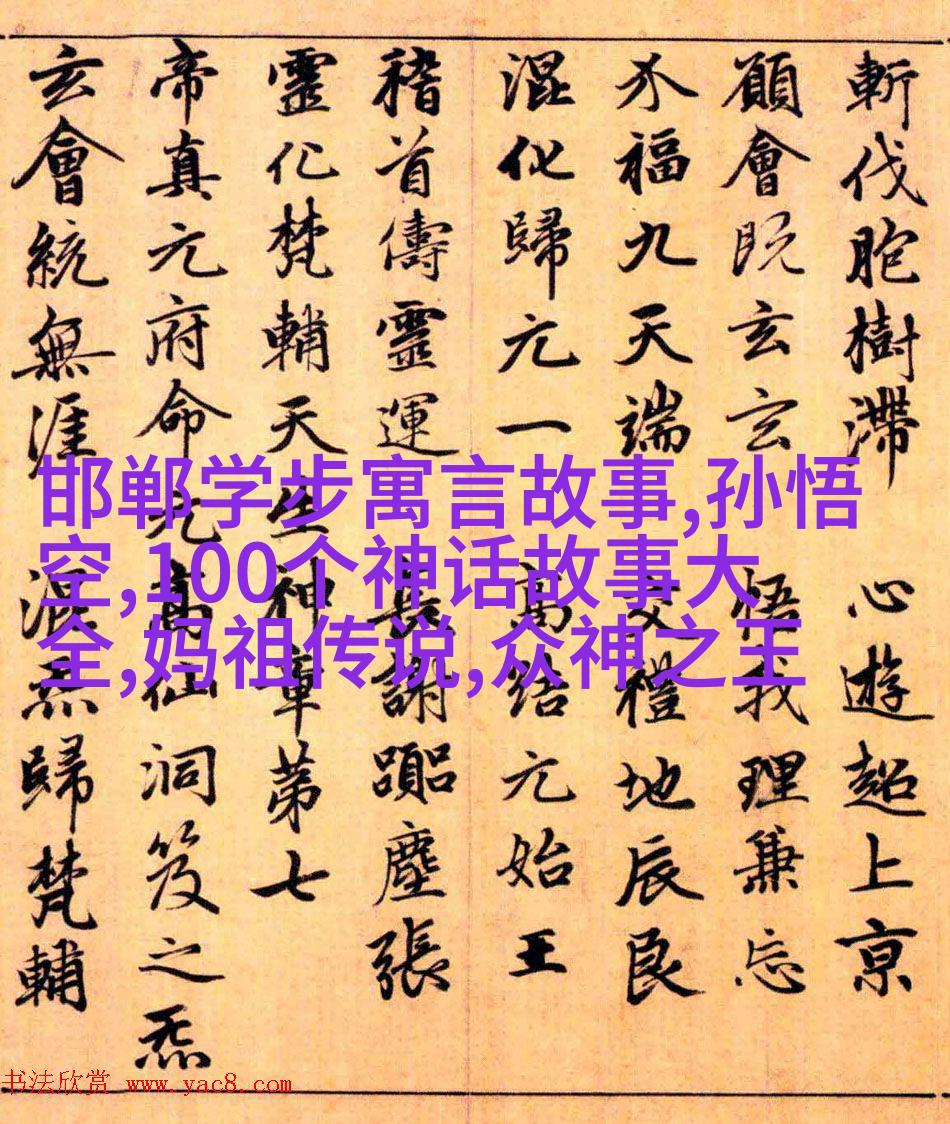 斬伐胞樹滯 心遊超上京
願會既玄玄 悟我理兼忘
介福九天端 交禮地辰良
混化歸元一 高結元始王
稽首儔靈運 長謝躡塵張
靈化梵輔天生神章第七
帝真元府命元高仙洞笈之炁
玄會統無涯 混炁歸梵輔
邯郸学步寓言故事,孙悟
空,100个神话故事大
全,妈祖传说,众神之王
书法欣赏 www.yac8.com